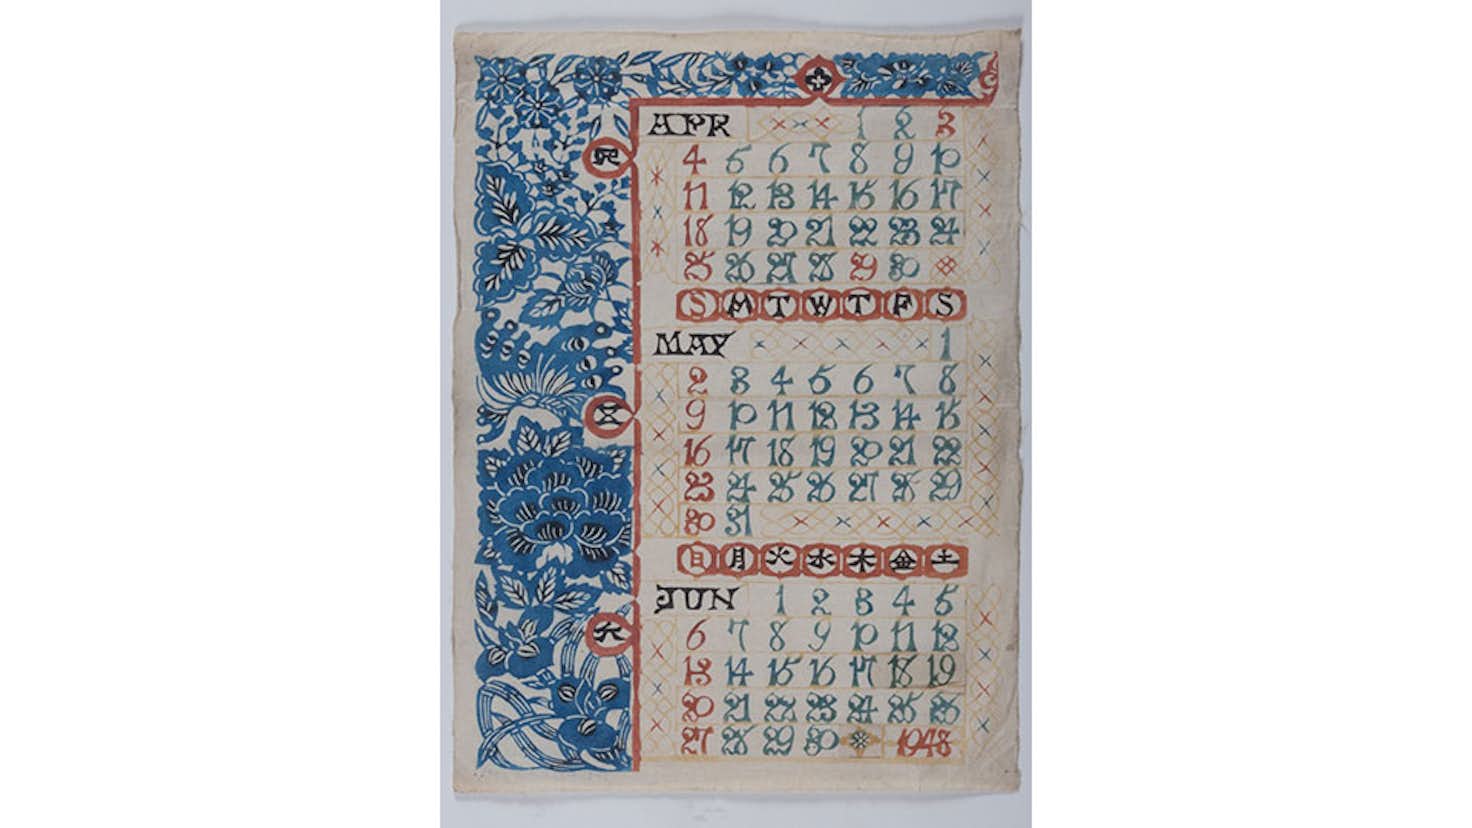 APR 1 2 3
四 4 5 6 7 8 9 10
11 12 13 14 15 16 17
18 19 20 21 22 23 24
25 26 27 28 29 30
S M T W T F S
MAY 1
2 3 4 5 6 7 8
五 9 10 11 12 13 14 15
16 17 18 19 20 21 22
23 24 25 26 27 28 29
30 31
日 月 火 水 木 金 土
JUN 1 2 3 4 5
六 6 7 8 9 10 11 12
13 14 15 16 17 18 19
20 21 22 23 24 25 26
27 28 29 30 1948